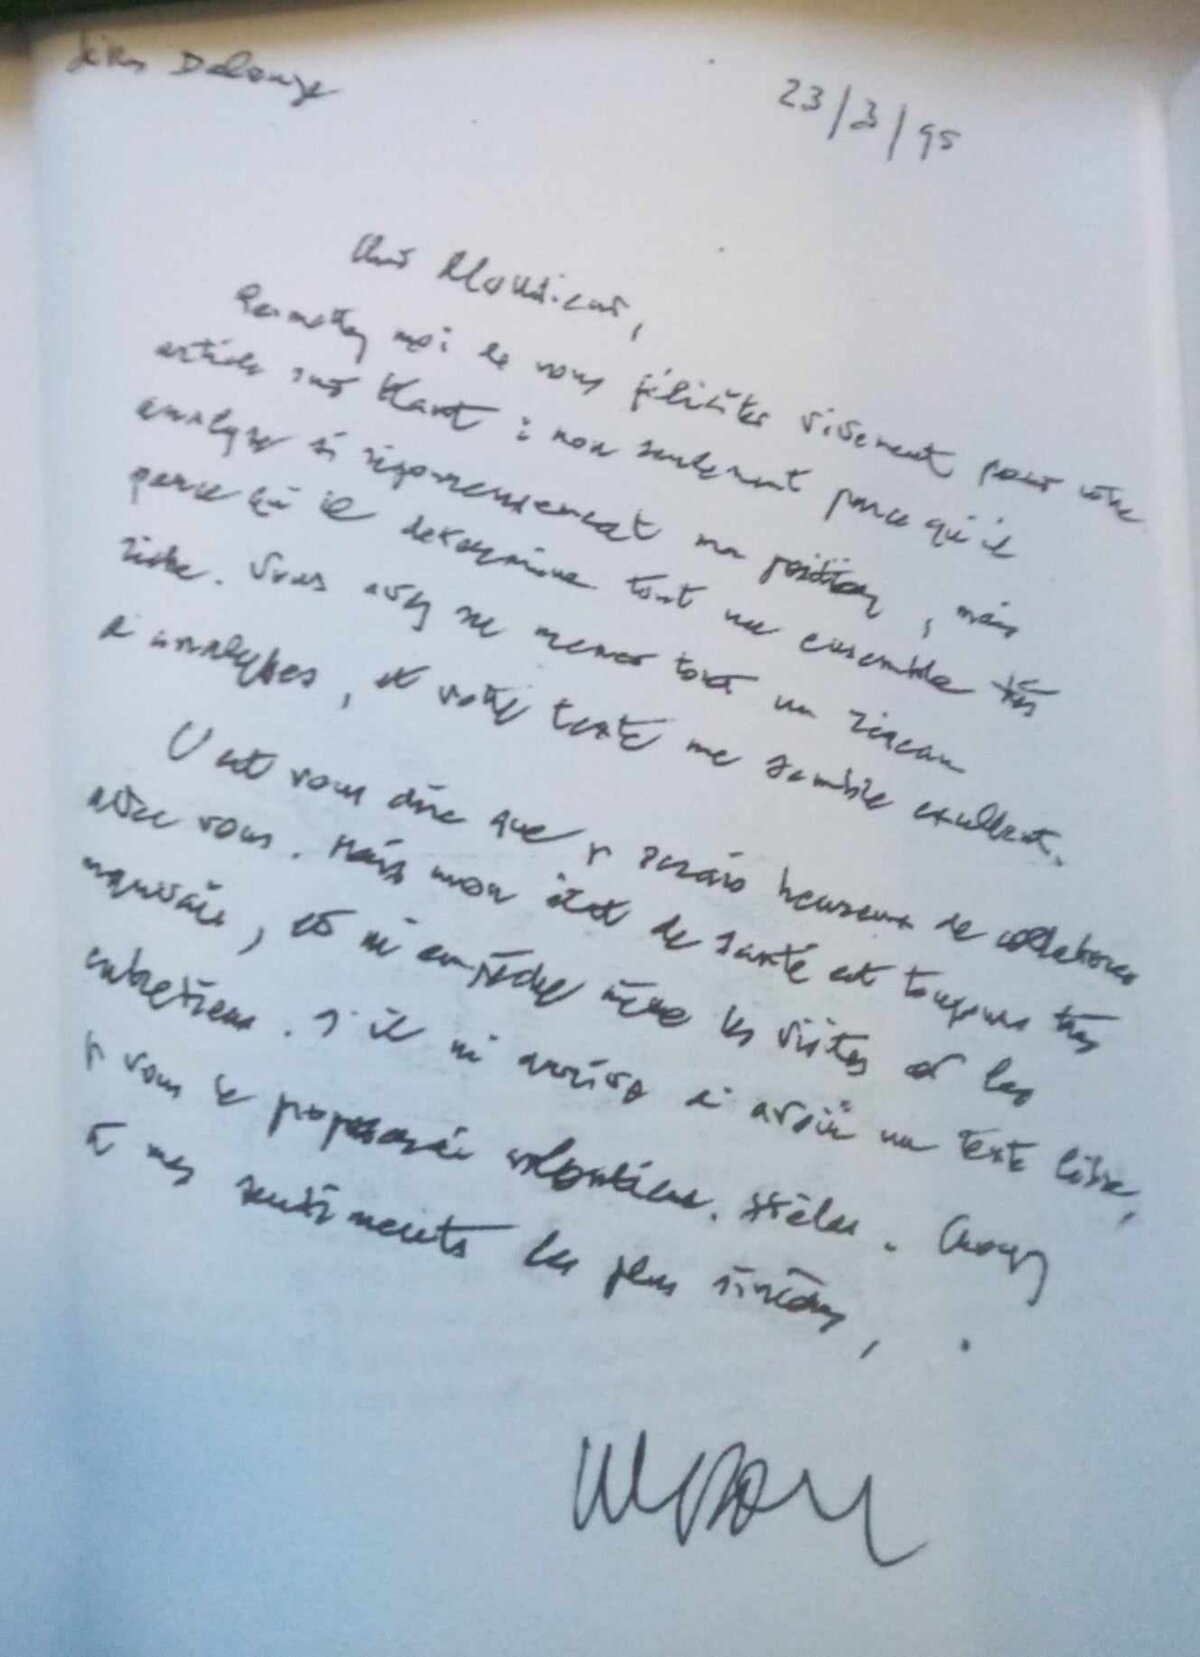 Gilles Deleuze
23/3/95
Cher Monsieur,
Permettez moi de vous féliciter vivement pour votre
article sur Kant : non seulement parce qu'il
analyse si rigoureusement ma position, mais
parce qu'il détermine tout un ensemble très
riche. Vous avez su mener tout un réseau
d'analyses, et votre texte me semble excellent.
C'est vous dire que je serais heureux de collaborer
avec vous. Mais mon état de santé est toujours très
mauvais, et m'empêche même les visites et les
entretiens. S'il m'arrive d'avoir un texte libre,
je vous le proposerai volontiers. Hélas. Croyez
à mes sentiments les plus sincères,